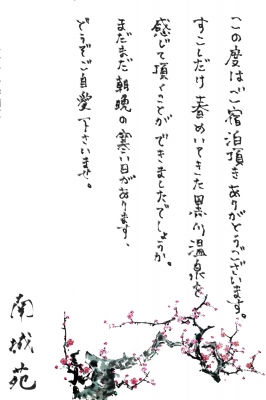 この度はご宿泊頂きありがとうございます。
すこしだけ春めいてきた黒川温泉を
感じて頂くことができましたでしょうか。
まだまだ朝晩の寒い日があります、
どうぞご自愛下さいませ。
南城苑